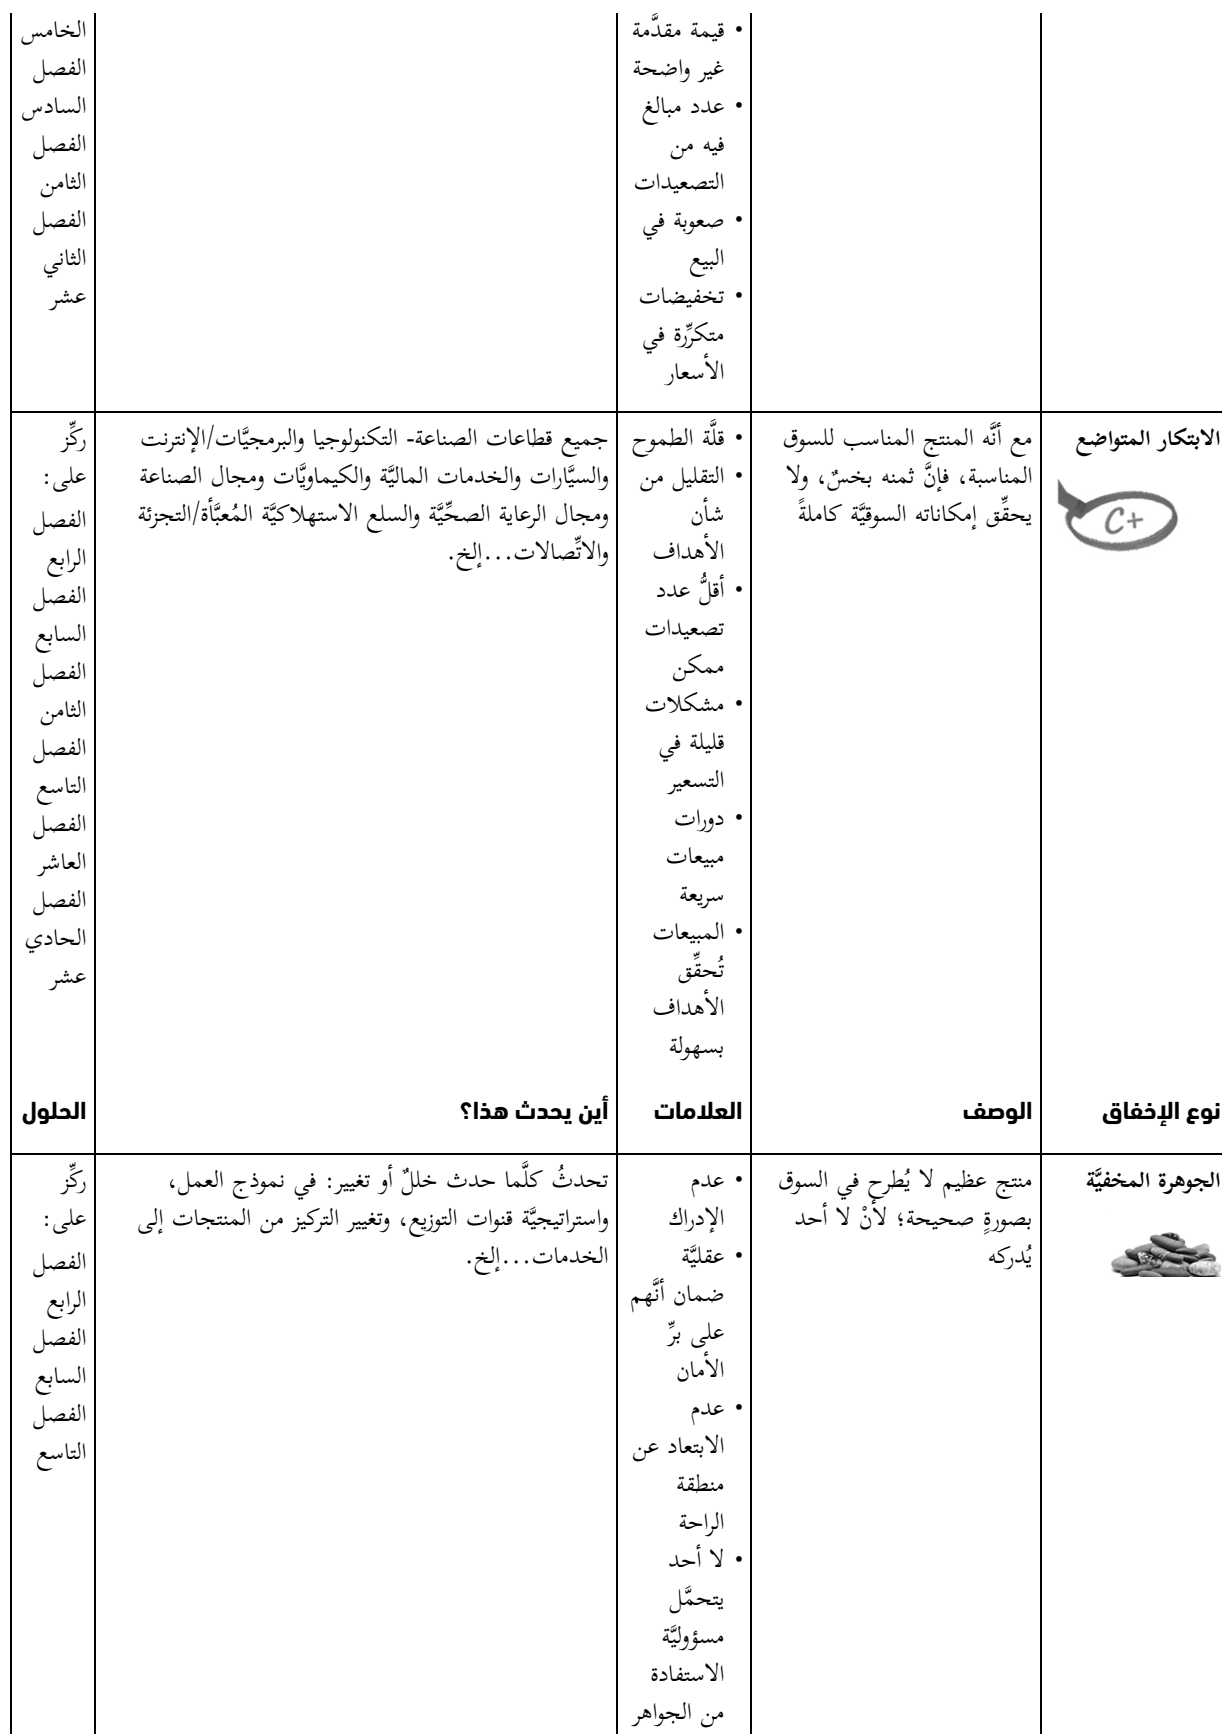 • قيمة مقدَّمة
غير واضحة
• عدد مبالغ
فيه من
التصعيدات
• صعوبة في
البيع
• تخفيضات
متكرِّرة في
الأسعار
الخامس
الفصل
السادس
الفصل
الثامن
الفصل
الثاني
عشر
الابتكار المتواضع
C+
مع أنَّه المنتج المناسب للسوق
المناسبة، فإنَّ ثمنه بخسٌ، ولا
يحقِّق إمكاناته السوقيَّة كاملةً
• قلَّة الطموح
• التقليل من
شأن
الأهداف
• أقلُّ عدد
تصعيدات
ممكن
• مشكلات
قليلة في
التسعير
• دورات
مبيعات
سريعة
• المبيعات
تُحقِّق
الأهداف
بسهولة
جميع قطاعات الصناعة- التكنولوجيا والبرمجيَّات/الإنترنت
والسيَّارات والخدمات الماليَّة والكيماويَّات ومجال الصناعة
ومجال الرعاية الصحِّيَّة والسلع الاستهلاكيَّة المُعبَّأة/التجزئة
والاتِّصالات...إلخ.
ركِّز
على:
الفصل
الرابع
الفصل
السابع
الفصل
الثامن
الفصل
التاسع
الفصل
العاشر
الفصل
الحادي
عشر
نوع الإخفاق
الوصف
العلامات
أين يحدث هذا؟
الحلول
الجوهرة المخفيَّة
منتج عظيم لا يُطرح في السوق
بصورةٍ صحيحة؛ لأنْ لا أحد
يُدركه
• عدم
الإدراك
• عقليَّة
ضمان أنَّهم
على برِّ
الأمان
• عدم
الابتعاد عن
منطقة
الراحة
• لا أحد
يتحمَّل
مسؤوليَّة
الاستفادة
من الجواهر
تحدثُ كلَّما حدث خللٌ أو تغيير: في نموذج العمل،
واستراتيجيَّة قنوات التوزيع، وتغيير التركيز من المنتجات إلى
الخدمات...إلخ.
ركِّز
على:
الفصل
الرابع
الفصل
السابع
الفصل
التاسع